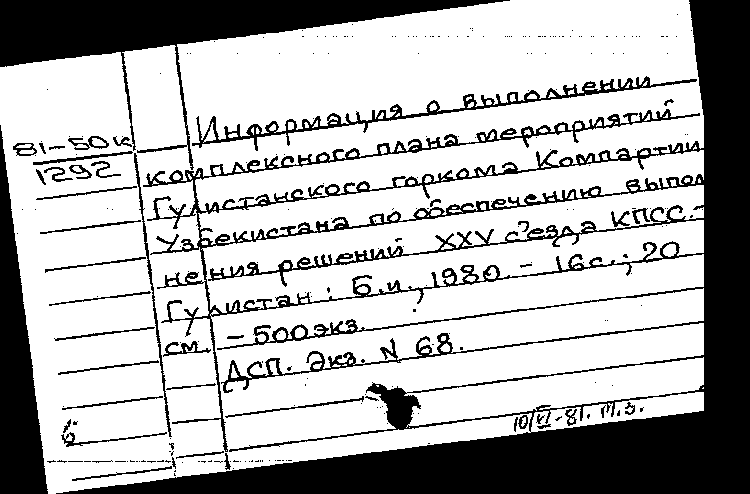 81-50к
1292
Информация о выполнении
комплексного плана мероприятий
Гулистанского горкома Компартии
Узбекистана по обеспечению выпол
нения решений XXV съезда КПСС.-
Гулистан: Б.и., 1980. - 16с.; 20
см. - 500экз.
ДСП. Экз. N 68.
б
10/VI-81. М.З.